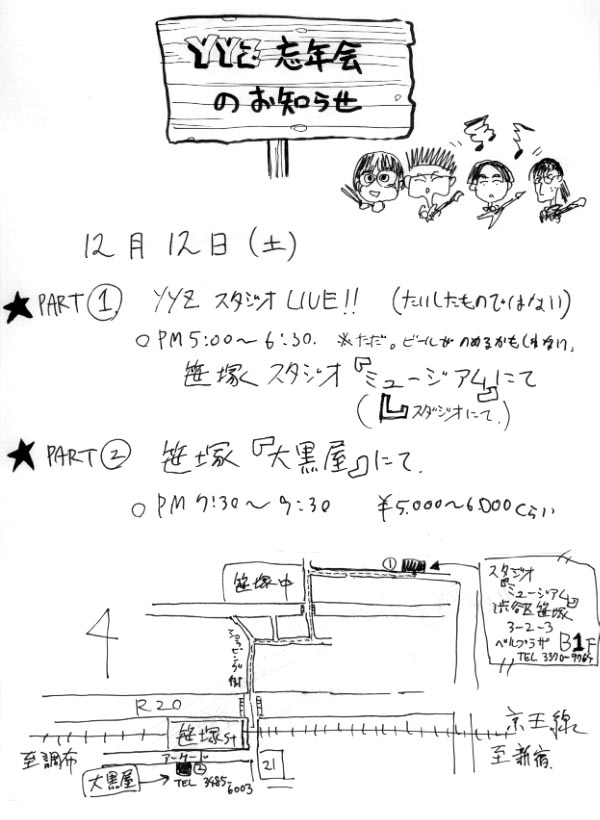 YYZ 忘年会
のお知らせ
12月12日(土)
★PART① YYZ スタジオ LIVE!! (たいしたものではない)
○PM5:00〜6:30. ※ただ。ビールがのめるかもしれない。
笹塚 スタジオ『ミュージアム』にて
(Lスタジオにて.)
★PART② 笹塚『大黒屋』にて.
○PM7:30〜9:30 ¥5.000〜6.000くらい
①
笹塚中
スタジオ
『ミュージアム』
渋谷区笹塚
3-2-3
ベルプラザ B1F
4
ショッピング街
R20
笹塚St
京王線
至調布
至新宿
アーケード
21
大黒屋
②
TEL 3485-6003